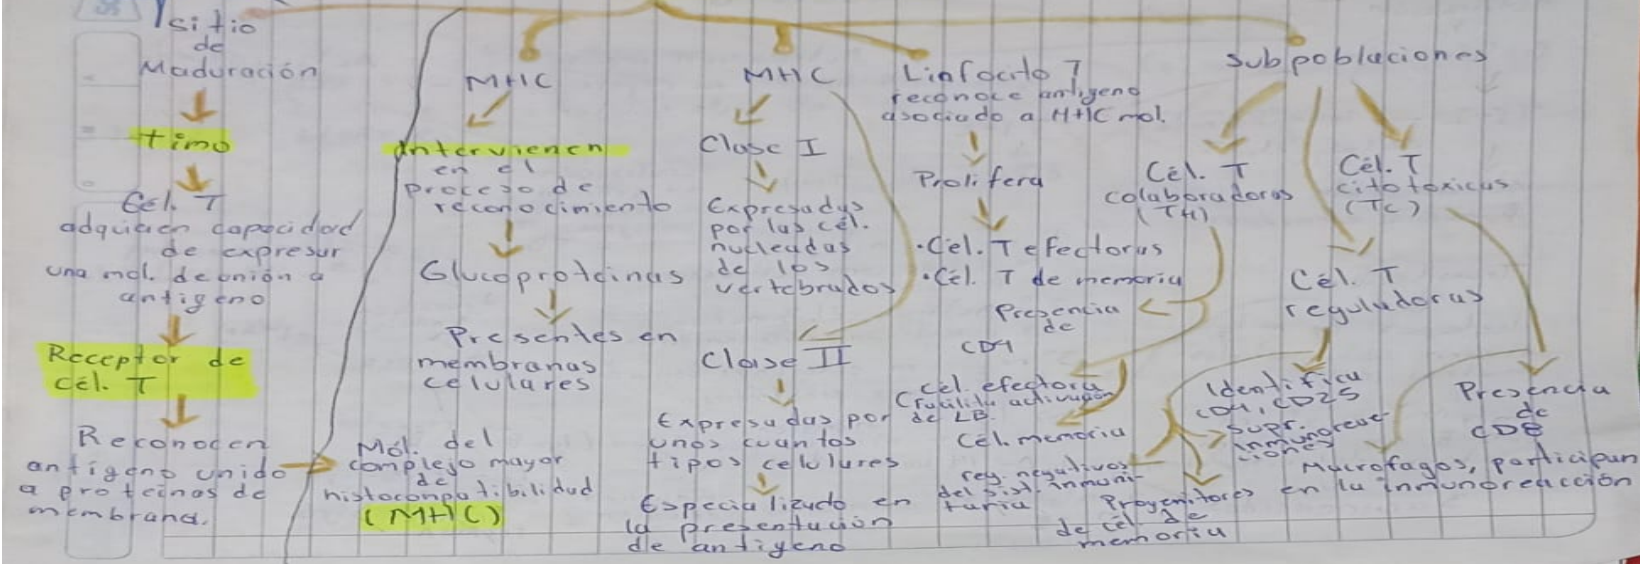 sitio
de
Maduración
timo
Cél. T
adquieren capacidad
de expresar
una mol. de unión a
antígeno
Receptor de
Cél. T
Reconocen
antígeno unido
a proteínas de
membrana.
Mól. del
complejo mayor
de
histocompatibilidad
(MHC)
MHC
Intervienen
en el
proceso de
reconocimiento
Glucoproteínas
Presentes en
membranas
celulares
MHC
Clase I
Expresadas
por las cél.
nucleadas
de los
vertebrados
Clase II
Expresadas por
unos cuantos
tipos celulares
Especializado en
la presentación
de antígeno
Linfocito T
reconoce antígeno
asociado a MHC mol.
Prolifera
• Cél. T efectoras
• Cél. T de memoria
subpoblaciones
Cél. T
colaboradoras
(TH)
Presencia
de
CD4
Cel. efectora
activación
de LB.
Cél. memoria
Cél. T
reguladoras
Identifica
CD4, CD25
supr.
inmunoreac
ciones
reg. negativos
del sist. inmuni-
taria
Progenitores
de cél. de
memoria
Cél. T
citotóxicas
(TC)
Presencia
de
CD8
Macrofagos, participan
en la inmunoreacción